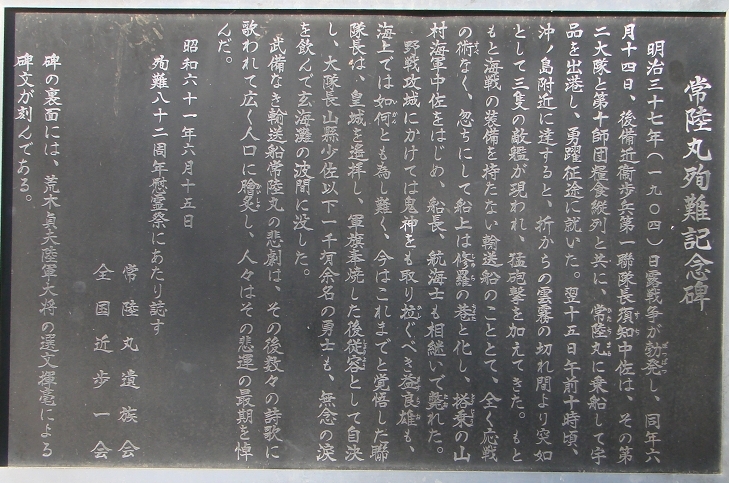 常陸丸殉難記念碑
明治三十七年(一九〇四)日露戦争が勃発し、同年六
月十四日、後備近衛歩兵第一聯隊長須知中佐は、その第
二大隊と第十師団糧食縦列と共に、常陸丸に乗船して宇
品を出港し、勇躍征途に就いた。翌十五日午前十時頃、
沖ノ島附近に達すると、折からの雲霧の切れ間より突如
として三隻の敵艦が現われ、猛砲撃を加えてきた。もと
もと海戦の装備を持たない輸送船のこととて、全く応戦
の術なく、忽ちにして船上は修羅の巷と化し、搭乗の山
村海軍中佐をはじめ、船長、航海士も相継いで斃れた。
野戦攻城にかけては鬼神をも取り拉ぐべき奈良雄も、
海上では如何とも為し難く、今はこれまでと覚悟した聯
隊長は、皇城を遙拝し、軍旗奉焼した後従容として自決
し、大隊長山縣少佐以下一千有余名の勇士も、無念の涙
を飲んで玄海灘の波間に没した。
武備なき輸送船常陸丸の悲劇は、その後数々の詩歌に
歌われて広く人口に膾炙し、人々はその悲運の最期を悼
んだ。
昭和六十一年六月十五日
殉難八十二周年慰霊祭にあたり誌す
常陸丸遺族会
全国近歩一会
碑の裏面には、荒木貞夫陸軍大将の選文揮毫による
碑文が刻んである。